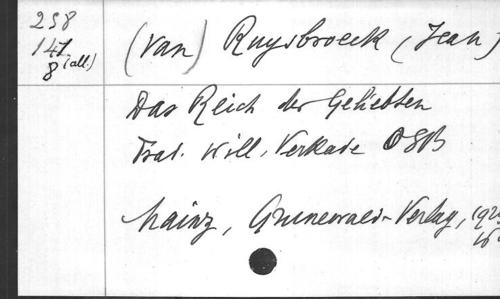 258
141
8 (all.)
(van) Ruysbroeck (Jean)
Das Reich der Geliebten
Trad. Will. Verkade OSB
Mainz, Grunewald-Verlag, 192